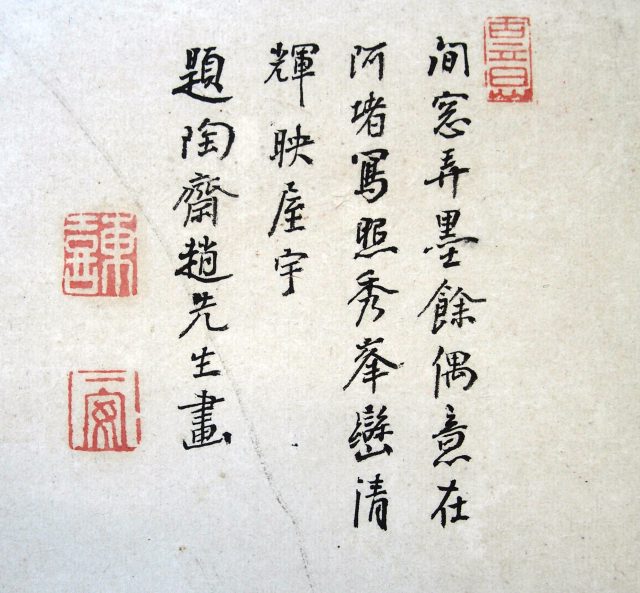 閒窓弄墨餘偶意在
阿堵寫照秀峯巒清
輝映屋宇
題陶齋趙先生畫